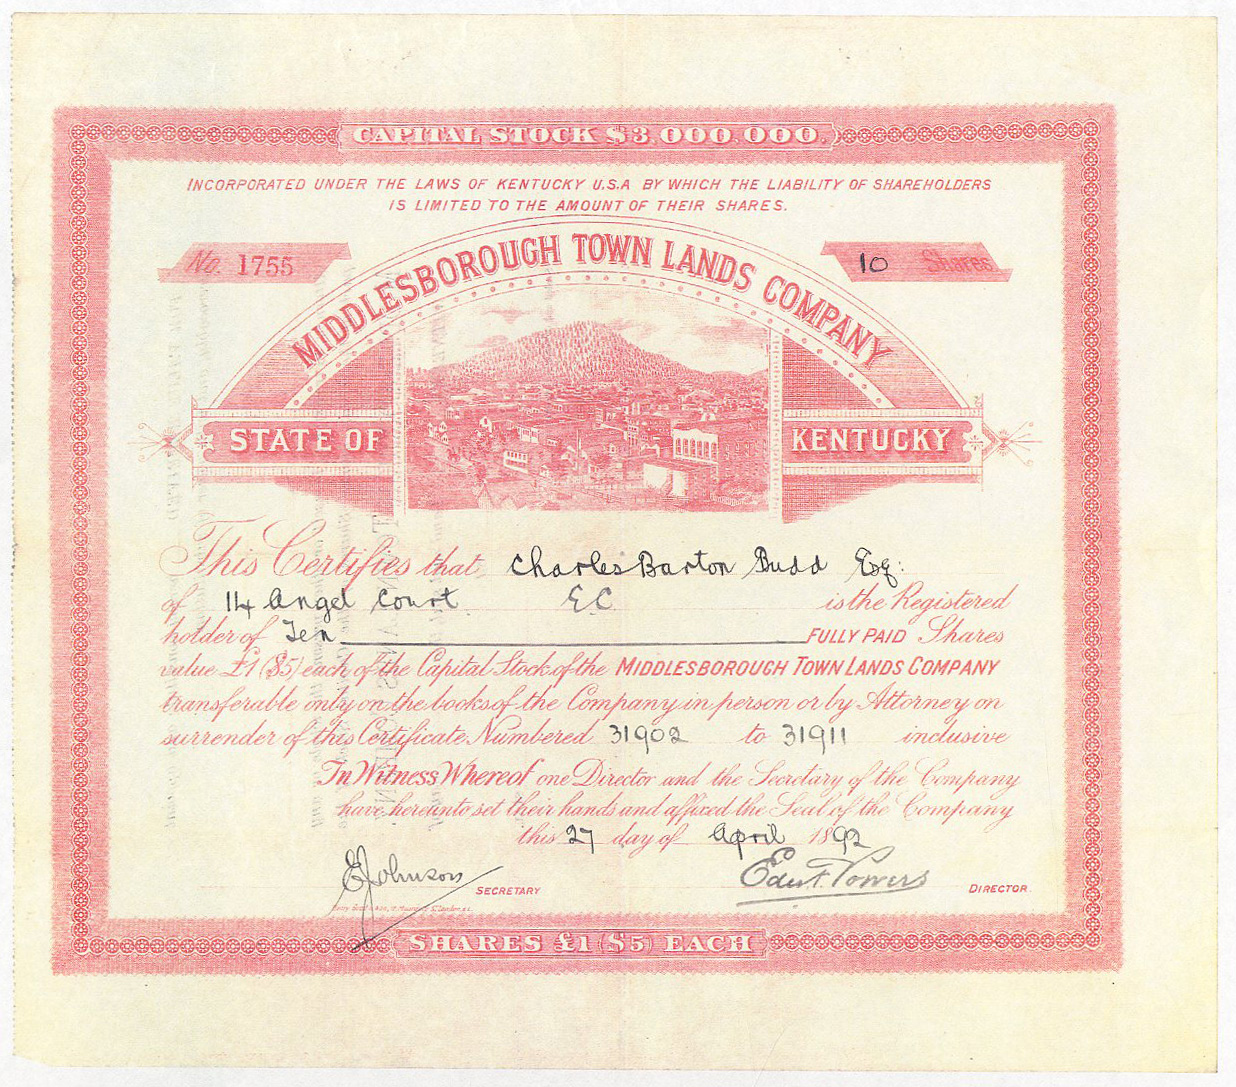 CAPITAL STOCK $3,000,000.
INCORPORATED UNDER THE LAWS OF KENTUCKY U.S.A BY WHICH THE LIABILITY OF SHAREHOLDERS
IS LIMITED TO THE AMOUNT OF THEIR SHARES.
No. 1755
10 Shares
MIDDLESBOROUGH TOWN LANDS COMPANY
STATE OF KENTUCKY
This Certifies that Charles Barton Budd Esq:
of 14 Angel Court EC is the Registered
holder of Ten FULLY PAID Shares
value £1 ($5) each of the Capital Stock of the MIDDLESBOROUGH TOWN LANDS COMPANY
transferable only on the books of the Company in person or by Attorney on
surrender of this Certificate Numbered 31902 to 31911 inclusive
In Witness Whereof one Director and the Secretary of the Company
have hereunto set their hands and affixed the Seal of the Company
this 27 day of April 1892
E Johnson SECRETARY
Edw F. Powers DIRECTOR
SHARES £1 ($5) EACH